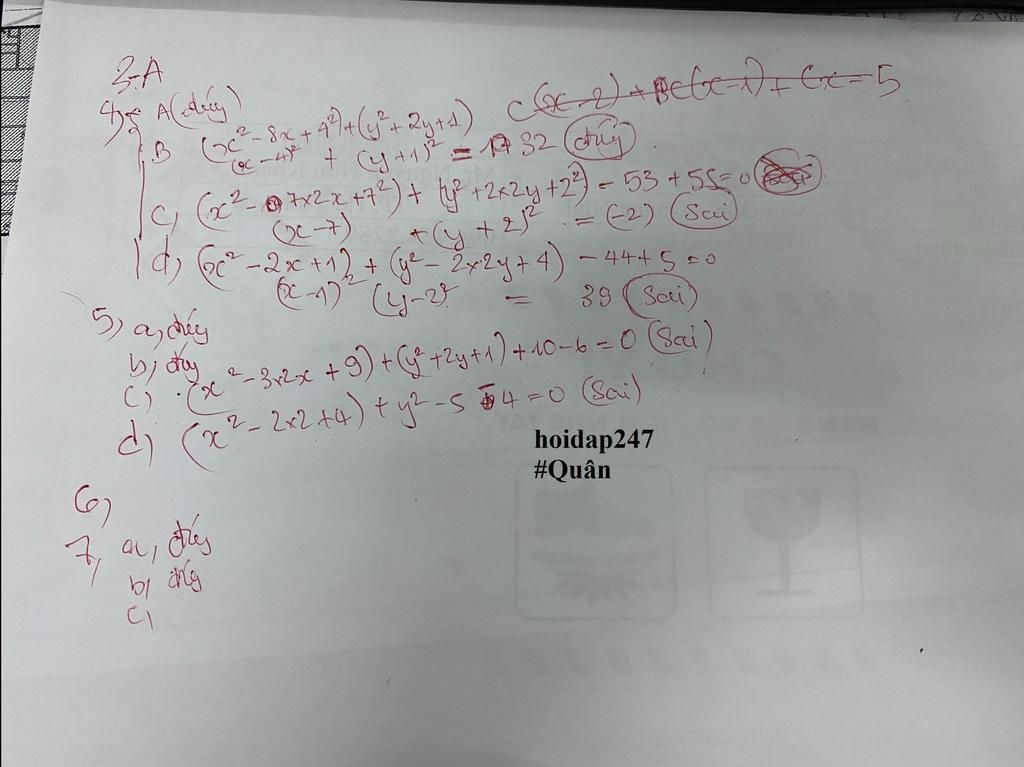 3-A
4, A (đúng)
C(x-2) + C(x-1) + Cx = 5
B (x² - 8x + 4²) + (y² + 2y + 1)
(x-4)² + (y+1)² = 32 (đúng)
c, (x² - 7×2x + 7²) + (y² + 2×2y + 2²) - 53 + 55 = 0
(x-7) + (y+2)² = (-2) (Sai)
d, (x² - 2x + 1) + (y² - 2×2y + 4) - 44 + 5 = 0
(x-1)² (y-2)² = 39 (Sai)
5, a, đúng
b, đúng
c, (x² - 3×2x + 9) + (y² + 2y + 1) + 10 - 6 = 0 (Sai)
d, (x² - 2×2 + 4) + y² - 5 - 4 = 0 (Sai)
hoidap247
#Quân
6,
7, a, đúng
b, đúng
c,